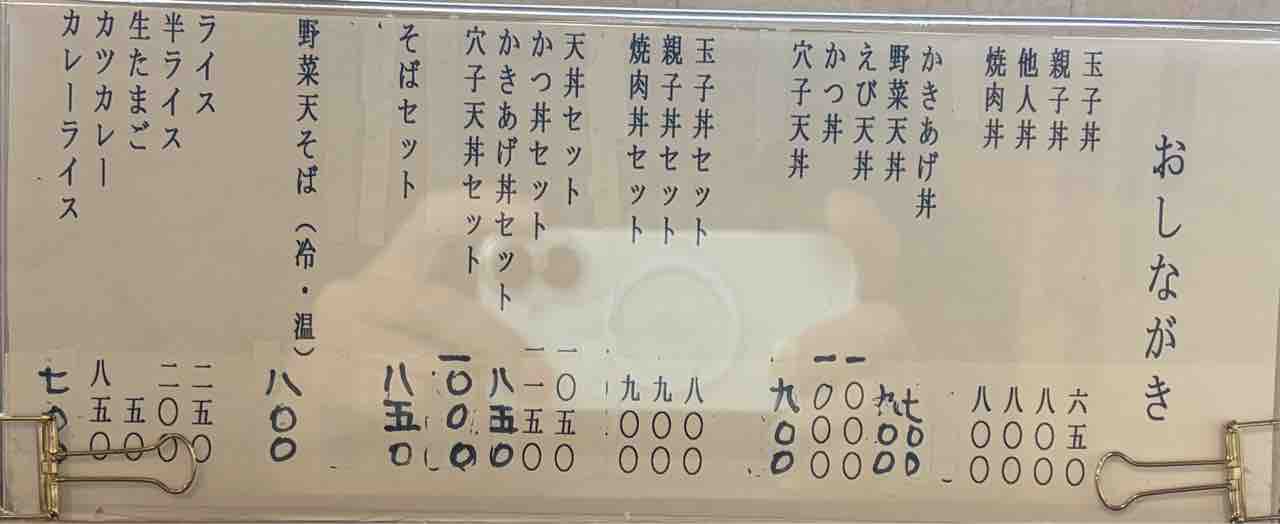 おしながき
玉子丼 六五〇
親子丼 八〇〇
他人丼 八〇〇
焼肉丼 八〇〇
かきあげ丼 七〇〇
野菜天丼 九〇〇
えび天丼 一〇〇〇
かつ丼 一〇〇〇
穴子天丼 九〇〇
玉子丼セット 八〇〇
親子丼セット 九〇〇
焼肉丼セット 九〇〇
天丼セット 一〇五〇
かつ丼セット 一一五〇
かきあげ丼セット 八五〇
穴子天丼セット 一〇〇〇
そばセット 八五〇
野菜天そば（冷・温） 八〇〇
ライス 二五〇
半ライス 二〇〇
生たまご 五〇
カツカレー 八五〇
カレーライス 七〇〇